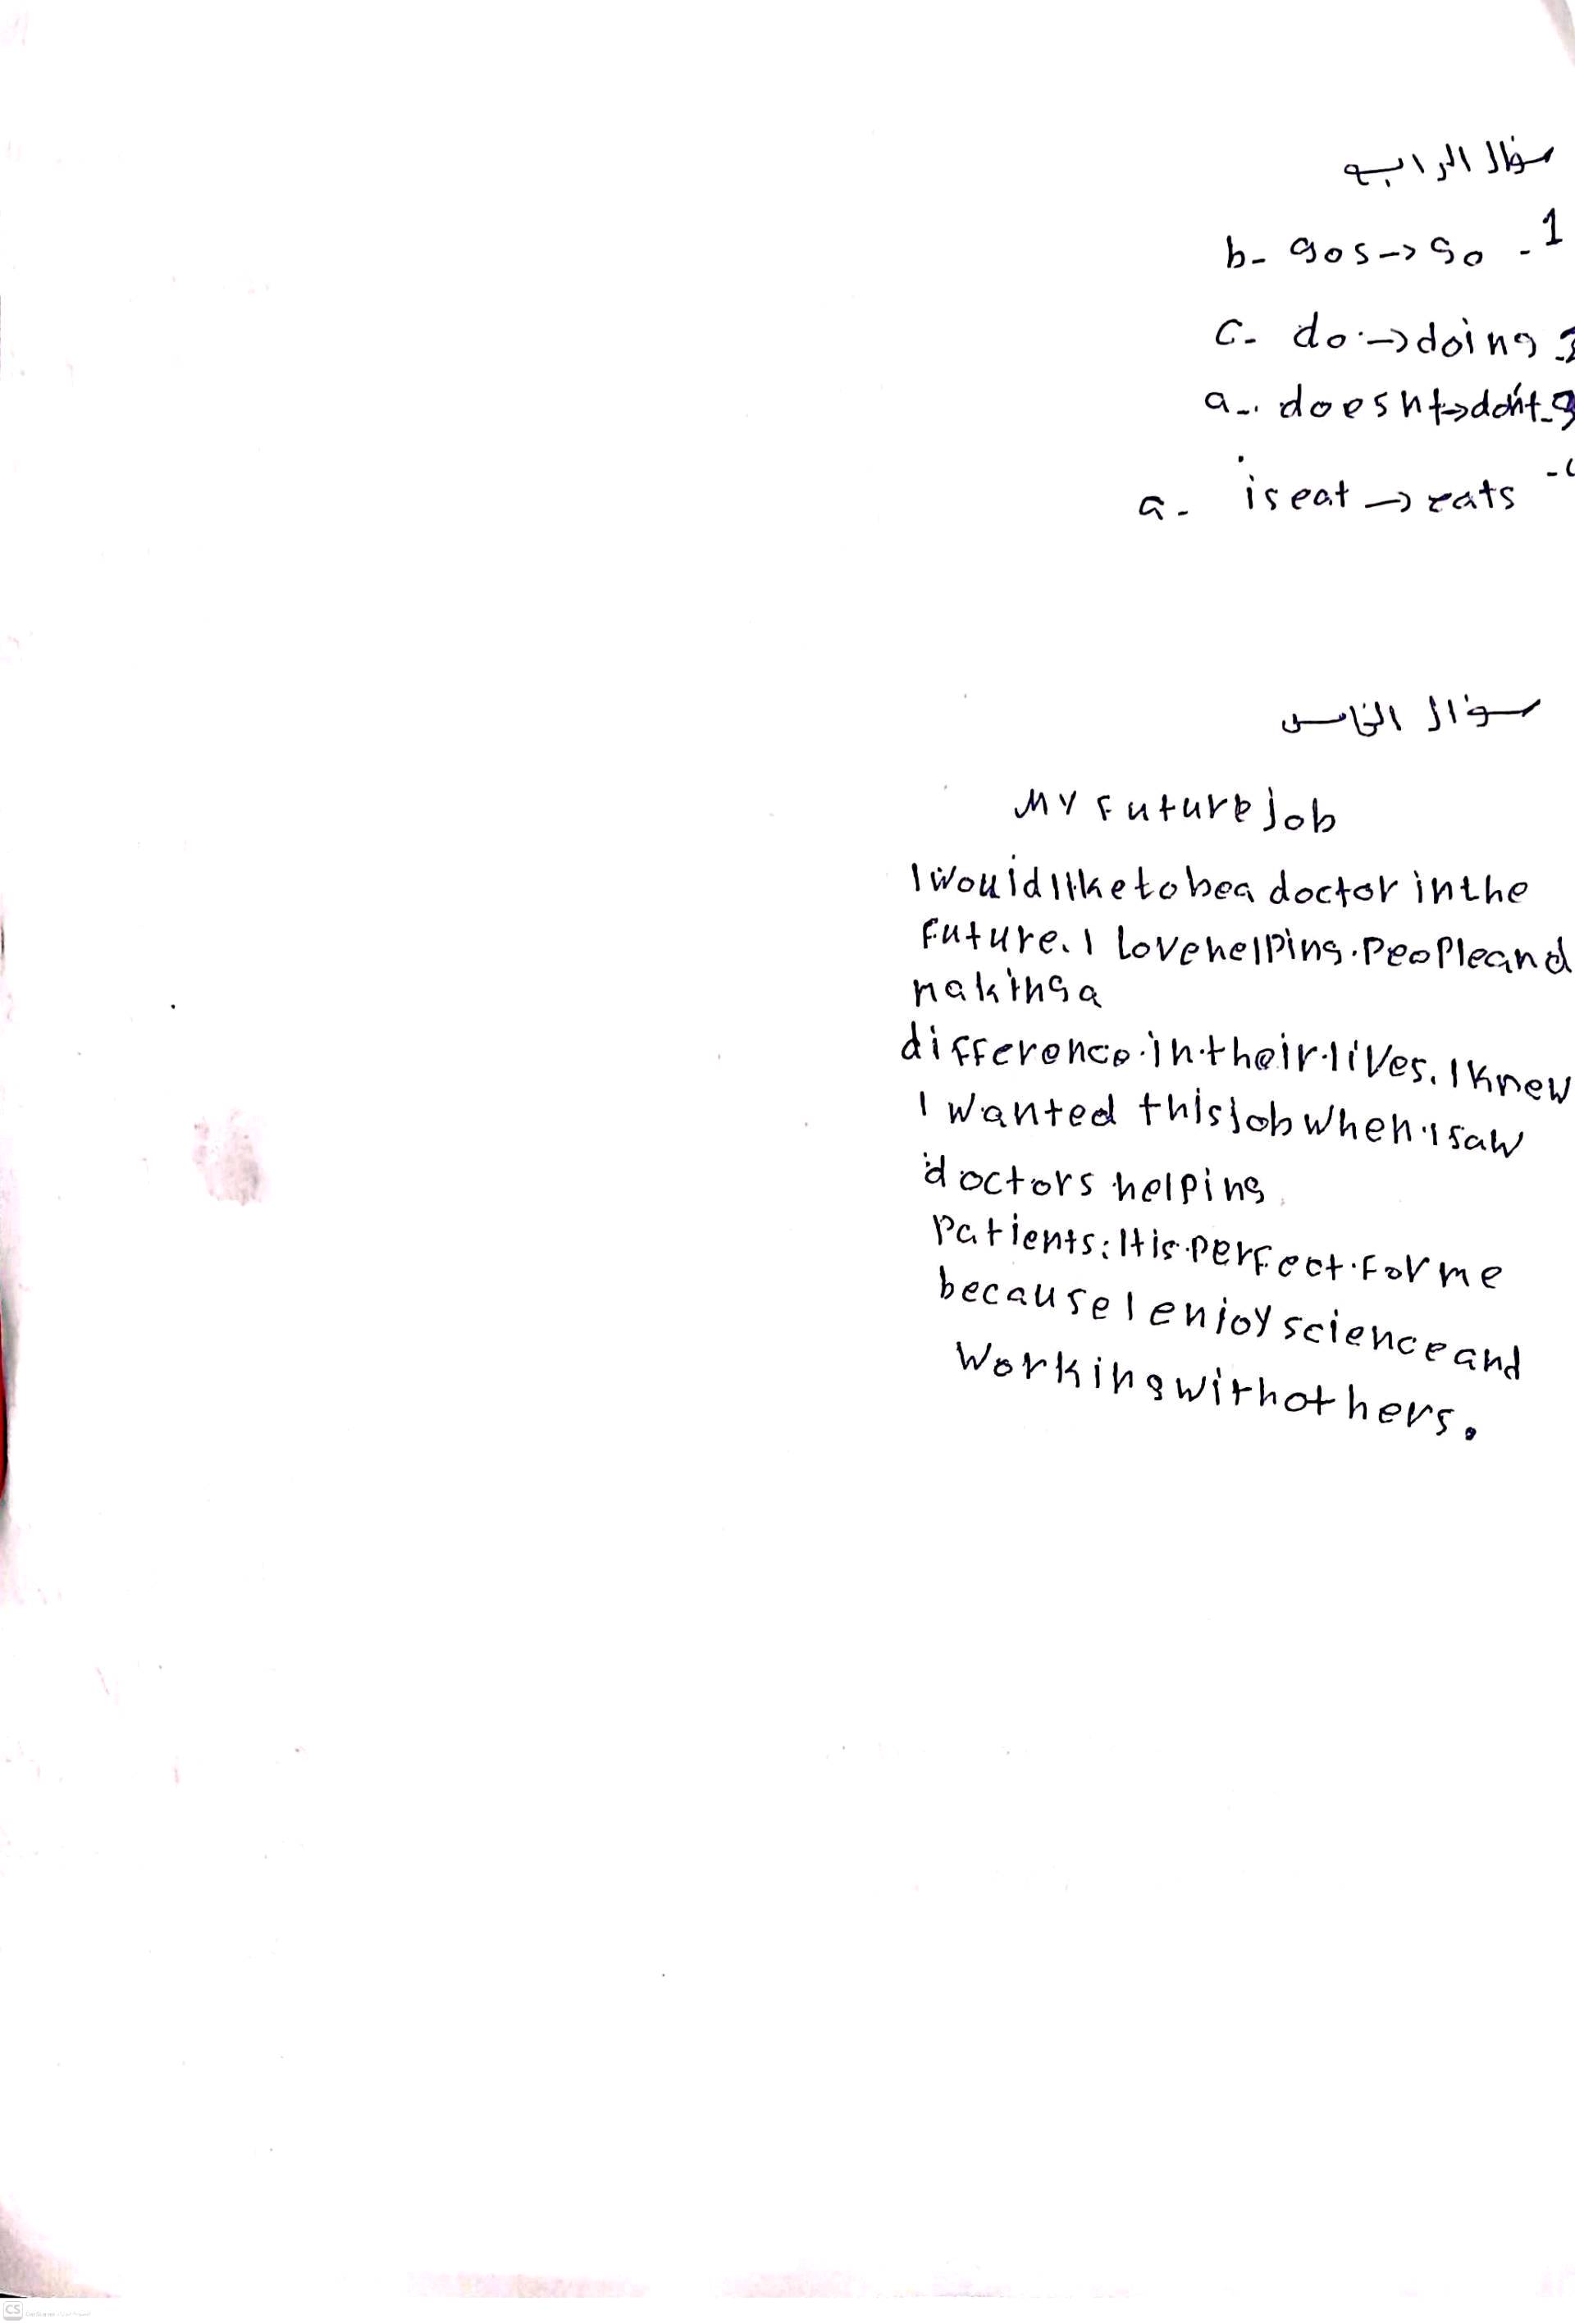 سؤال الرابع
b- gos -> go - 1
c- do -> doing -
a- doesnt -> don't -
a- is eat -> eats -
سؤال الخامس
My Future job
I would like to be a doctor in the
future. I love helping people and
making a
difference in their lives. I knew
I wanted this job when I saw
doctors helping
patients. It is perfect for me
because I enjoy science and
working with others.
CS